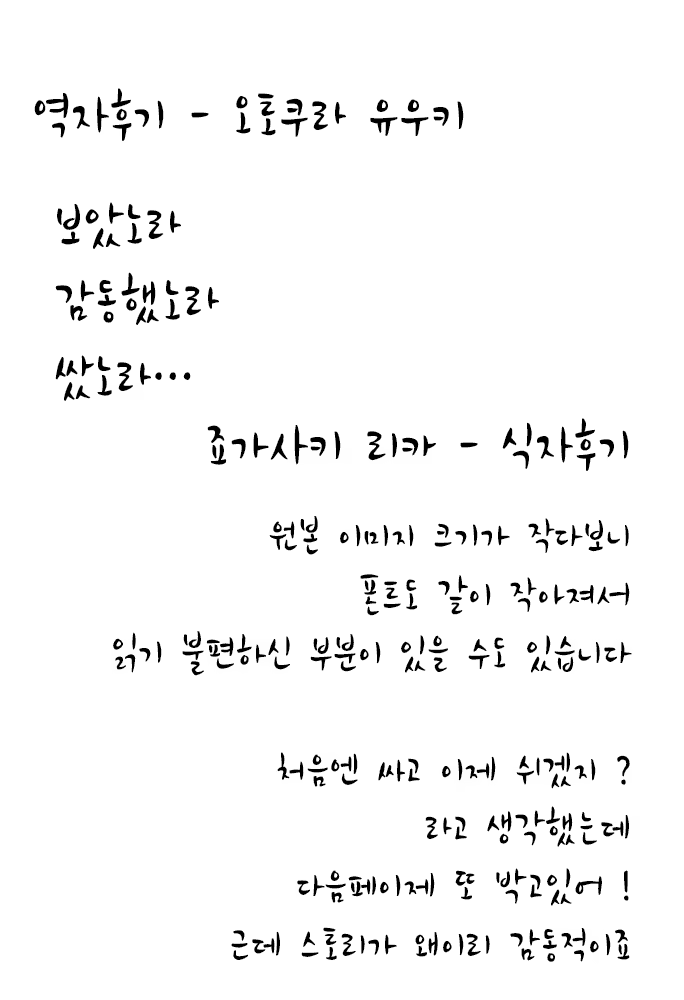 역자후기 - 오토쿠라 유우키
보았노라
감동했노라
쌌노라...
죠가사키 리카 - 식자후기
원본 이미지 크기가 작다보니
폰트도 같이 작아져서
읽기 불편하신 부분이 있을 수도 있습니다
처음엔 싸고 이제 쉬겠지 ?
라고 생각했는데
다음페이제 또 박고있어 !
근데 스토리가 왜이리 감동적이죠